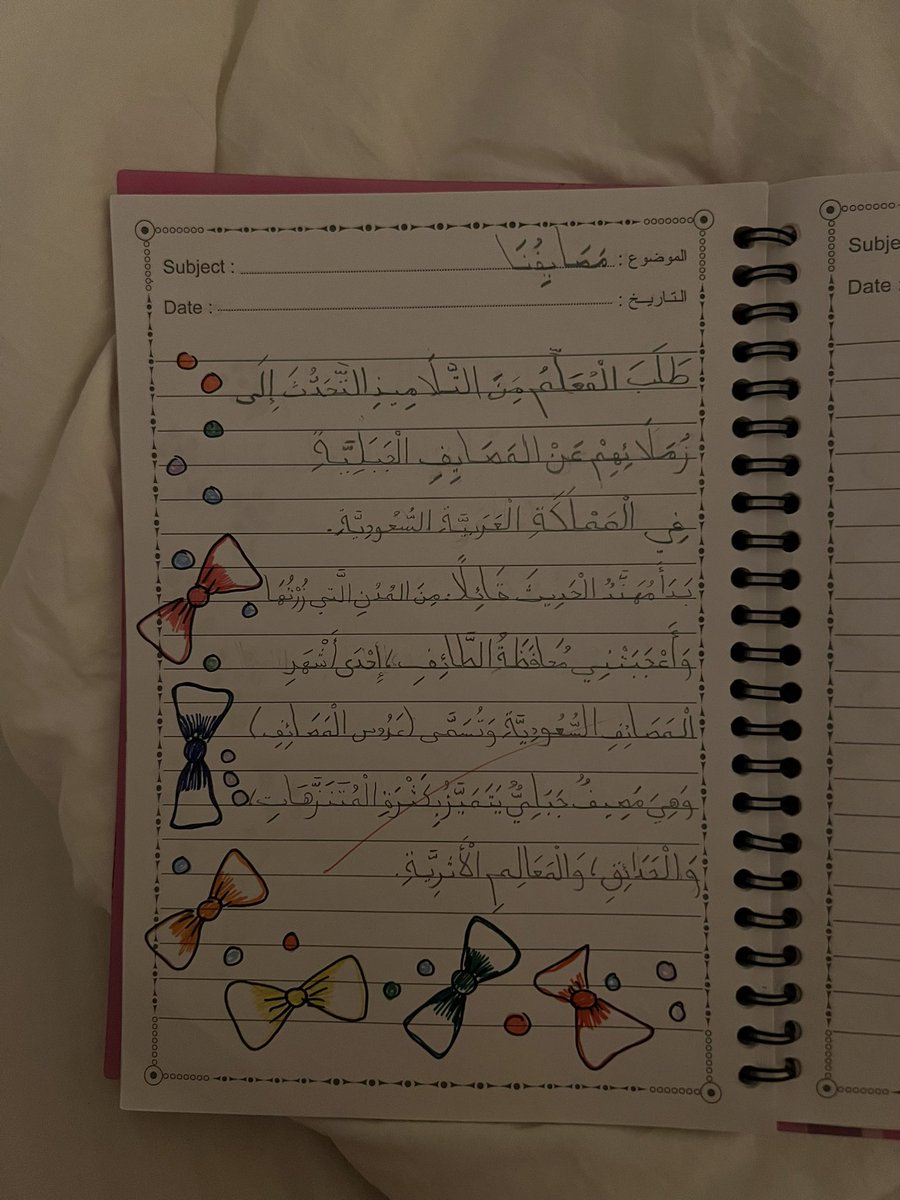 الموضوع : مَصَايِفُنَا
Subject :
التاريخ :
Date :
طَلَبَ الْمُعَلِّمُ مِنَ التَّلَامِيذِ التَّحَدُّثَ إِلَى
زُمَلَائِهِمْ عَنْ الْمَصَايِفِ الْجَبَلِيَّةِ
فِي الْمَمْلَكَةِ الْعَرَبِيَّةِ السُّعُودِيَّةِ.
بَدَأَ مُهَنَّدُ الْحَدِيثَ قَائِلًا: مِنَ الْمُدُنِ الَّتِي زُرْتُهَا
وَأَعْجَبَتْنِي مُحَافَظَةُ الطَّائِفِ، إِحْدَى أَشْهَرِ
الْمَصَائِفِ السُّعُودِيَّةِ وَتُسَمَّى (عَرُوس الْمَصَائِفِ)
وَهِيَ مَصِيفٌ جَبَلِيٌّ يَتَمَيَّزُ بِكَثْرَةِ الْمُتَنَزَّهَاتِ،
وَالْحَدَائِقِ، وَالْمَعَالِمِ الْأَثرِيَّةِ.
Subje
Date :